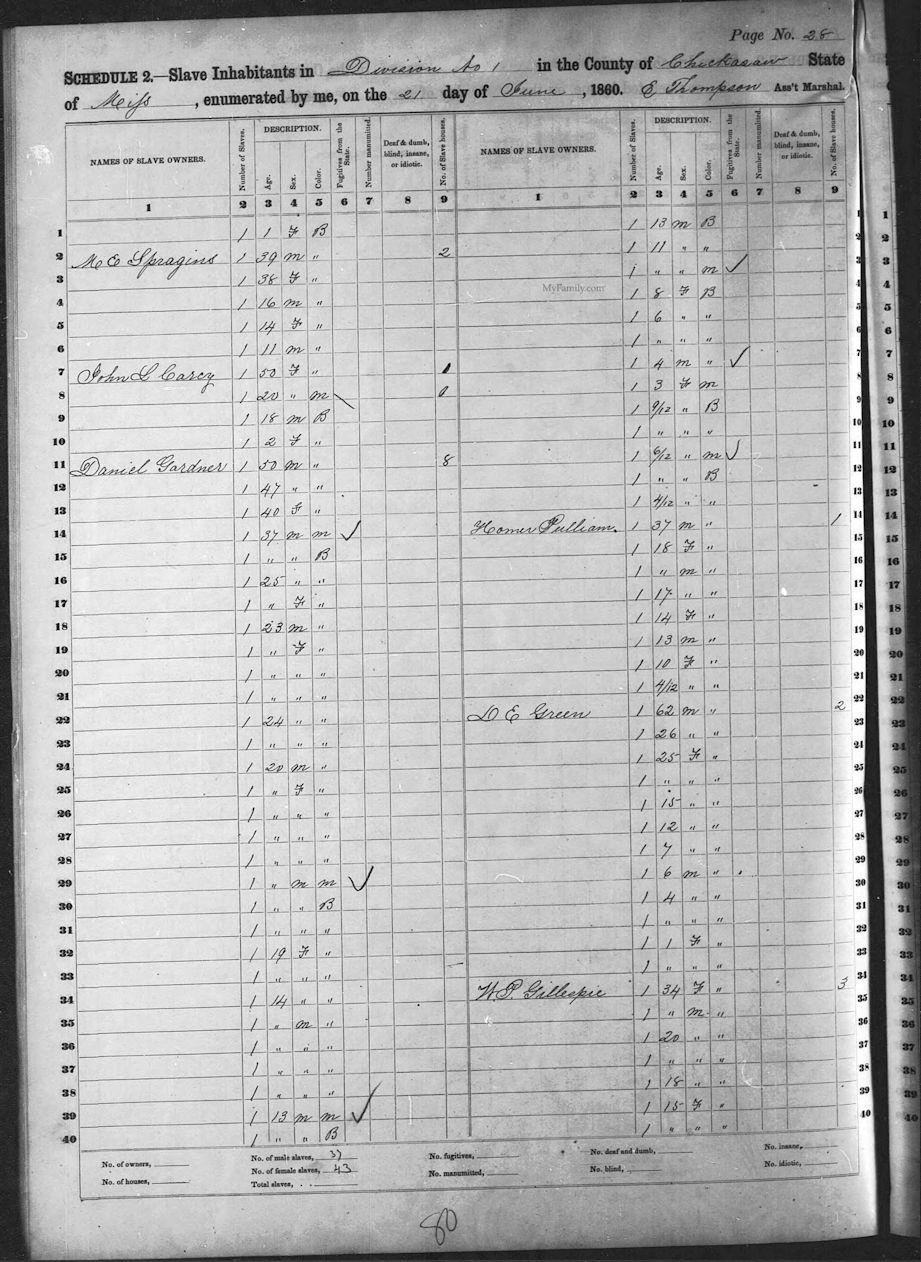 Page No. 28
SCHEDULE 2.—Slave Inhabitants in Division No 1 in the County of Chickasaw State
of Miss, enumerated by me, on the 21 day of June, 1860. E Thompson Ass't Marshal.
NAMES OF SLAVE OWNERS. Number of Slaves. DESCRIPTION. Age. Sex. Color. Fugitives from the State. Number manumitted. Deaf & dumb, blind, insane, or idiotic. No. of Slave houses. NAMES OF SLAVE OWNERS. Number of Slaves. DESCRIPTION. Age. Sex. Color. Fugitives from the State. Number manumitted. Deaf & dumb, blind, insane, or idiotic. No. of Slave houses.
1 2 3 4 5 6 7 8 9 1 2 3 4 5 6 7 8 9
1 1 1 F B 1 13 m B 1
2 M E Spragins 1 39 m " 2 1 11 " " 2
3 1 38 F " 1 " " m ✓ 3
4 1 16 m " MyFamily.com 1 8 F B 4
5 1 14 F " 1 6 " " 5
6 1 11 m " 1 " " " 6
7 John G Carcy 1 50 F " 1 1 4 m " ✓ 7
8 1 20 " m \ 1 3 F m 8
9 1 18 m B 1 9/12 " B 9
10 1 2 F " 1 " " " 10
11 Daniel Gardner 1 50 m " 8 1 6/12 " m ✓ 11
12 1 47 " " 1 " " B 12
13 1 40 F " 1 4/12 " " 13
14 1 37 m m ✓ Homer Pulliam. 1 37 m " 1 14
15 1 " " B 1 18 F " 15
16 1 25 " " 1 " m " 16
17 1 " F " 1 17 " " 17
18 1 23 m " 1 14 F " 18
19 1 " F " 1 13 m " 19
20 1 " " " 1 10 F " 20
21 1 " " " 1 4/12 " " 21
22 1 24 " " D E Green 1 62 m " 2 22
23 1 " " " 1 26 " " 23
24 1 20 m " 1 25 F " 24
25 1 " F " 1 " " " 25
26 1 " " " 1 15 " " 26
27 1 " " " 1 12 " " 27
28 1 " " " 1 7 " " 28
29 1 " m m ✓ 1 6 m " 29
30 1 " " B 1 4 " " 30
31 1 " " " 1 " " " 31
32 1 19 F " 1 1 F " 32
33 1 " " " 1 " " " 33
34 1 14 " " W. P. Gillespie 1 34 F " 3 34
35 1 " m " 1 " m " 35
36 1 " " " 1 20 " " 36
37 1 " " " 1 " " " 37
38 1 " " " 1 18 " " 38
39 1 13 m m ✓ 1 15 F " 39
40 1 " " B 1 " " " 40
No. of owners, No. of male slaves, 37 No. of fugitives, No. of deaf and dumb, No. insane,
No. of houses, No. of female slaves, 43 No. manumitted, No. blind, No. idiotic,
Total slaves,
80